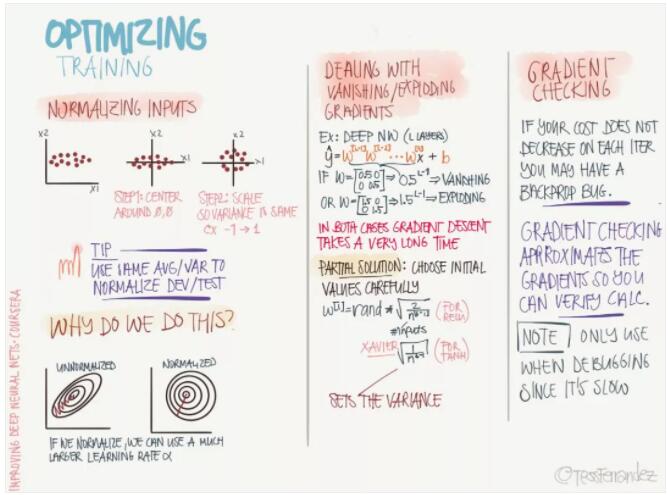 OPTIMIZING
TRAINING
NORMALIZING INPUTS
x2
x1
x2
x1
x2
x1
STEP1: CENTER
AROUND 0,0
STEP2: SCALE
SO VARIANCE IS SAME
ex -1 → 1
TIP
USE SAME AVG/VAR TO
NORMALIZE DEV/TEST
WHY DO WE DO THIS?
UNNORMALIZED
NORMALIZED
IF WE NORMALIZE, WE CAN USE A MUCH
LARGER LEARNING RATE α
IMPROVING DEEP NEURAL NETS - COURSERA
DEALING WITH
VANISHING/EXPLODING
GRADIENTS
EX: DEEP NW (L LAYERS)
ŷ = W[L-1] W[L-2] ... W[1] x + b
IF W = [0.5 0 0 0.5] ⇒ 0.5^L-1 ⇒ VANISHING
OR W = [1.5 0 0 1.5] ⇒ 1.5^L-1 ⇒ EXPLODING
IN BOTH CASES GRADIENT DESCENT
TAKES A VERY LONG TIME
PARTIAL SOLUTION: CHOOSE INITIAL
VALUES CAREFULLY
W[l] = rand * √2/n[l-1] (FOR RELU)
#INPUTS
XAVIER √1/n[l-1] (FOR TANH)
SETS THE VARIANCE
GRADIENT
CHECKING
IF YOUR COST DOES NOT
DECREASE ON EACH ITER
YOU MAY HAVE A
BACKPROP BUG.
GRADIENT CHECKING
APPROXIMATES THE
GRADIENTS SO YOU
CAN VERIFY CALC.
NOTE ONLY USE
WHEN DEBUGGING
SINCE IT'S SLOW
@TessFerrandez